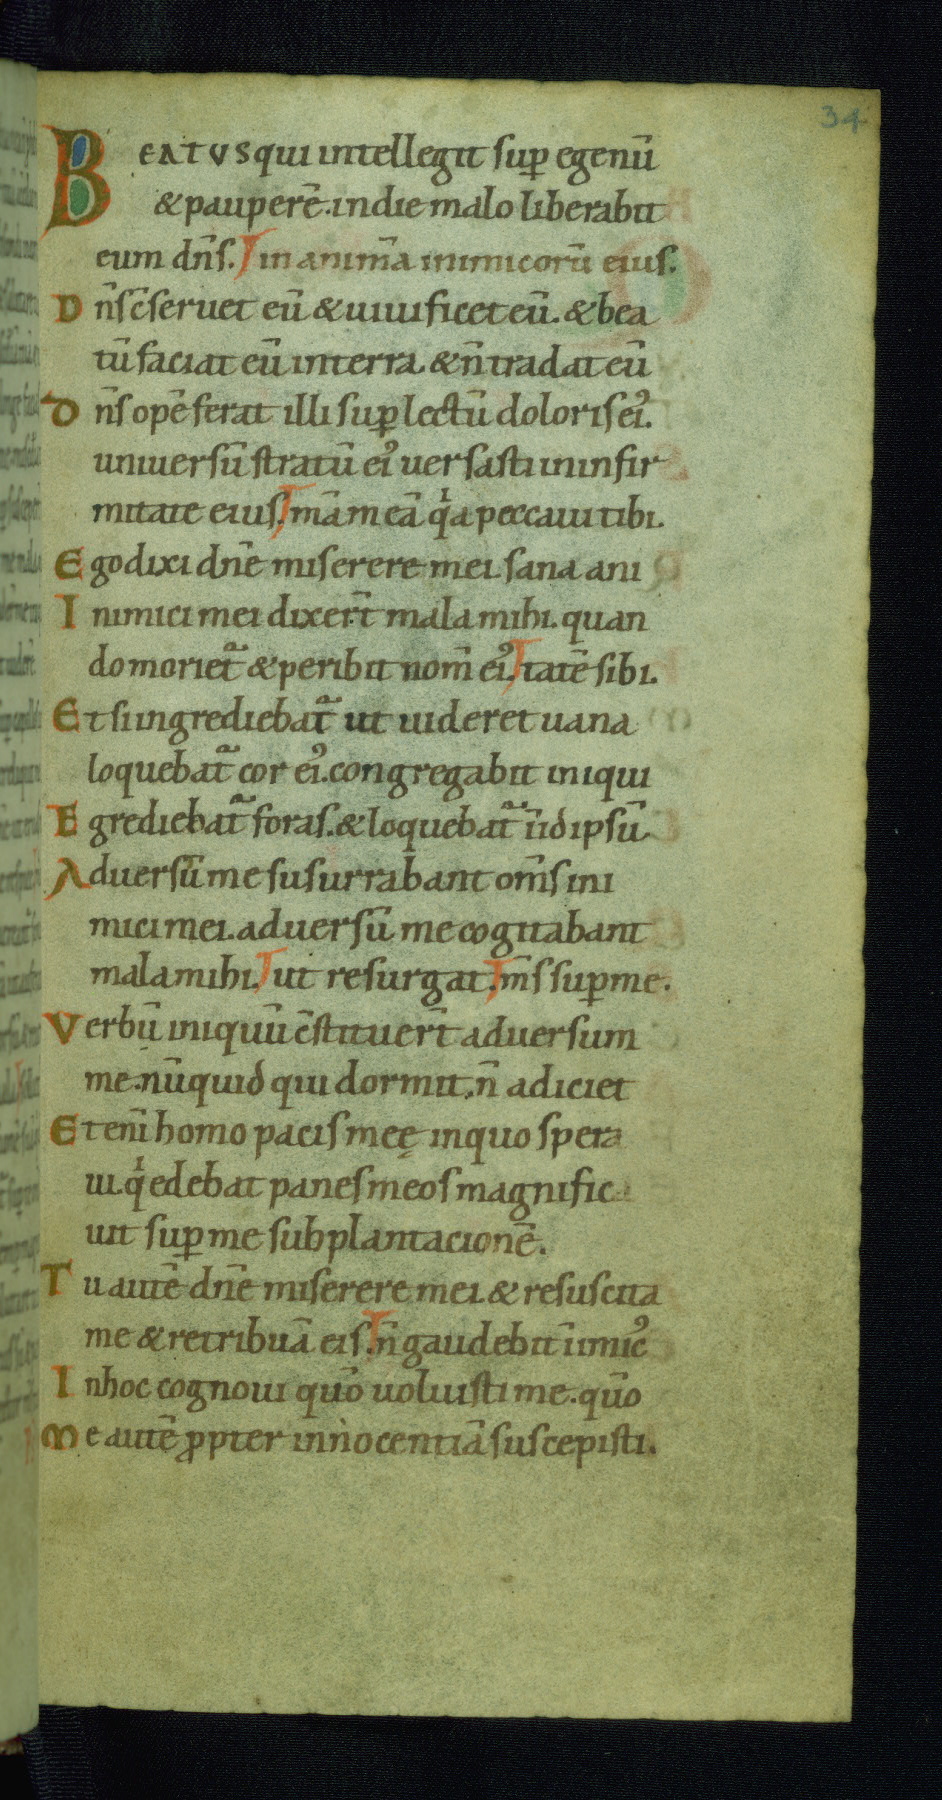 34
BEATVS qui intellegit sup̄ egenū
& pauperē. in die malo liberabit
eum dn̄s. in anim̄a inimicorū eius.
Dn̄s c̄seruet eū & uiuificet eū. & bea
tū faciat eū in terra. & n̄ tradat eū
Dn̄s opē ferat illi sup̄ lectū doloris ei᾽.
uniuersū stratū ei᾽ uersasti in infir
mitate eius. mā meā q̇a peccaui tibi.
Ego dixi dn̄e miserere mei. sana ani
Inimici mei dixer̄t mala mihi. quan
do moriet᷑ & peribit nom̄ ei᾽. tatē sibi.
Et si ingrediebat᷑ ut uideret uana
loquebat᷑ cor ei᾽. congregabit iniqui
Egrediebat᷑ foras. & loquebat᷑ īid ipsū
Aduersū me susurrabant om̄s ini
mici mei. aduersū me cogitabant
mala mihi. ut resurgat. m̄s sup̄ me.
Verbū iniquū c̄stituer̄t aduersum
me. nūquid qui dormit. n̄ adiciet
Etenī homo pacis meę in quo spera
ui. q̇ edebat panes meos magnific
uit sup̄ me subplantacionē.
Tu autē dn̄e miserere mei. & resuscita
me & retribuā eis. n̄ gaudebit īimic᾽
In hoc cognoui quō uoluisti me. quō
Me autē ꝓpter innocentiā suscepisti.